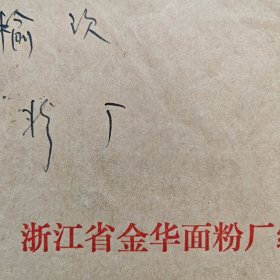 榆次
粉厂
浙江省金华面粉厂